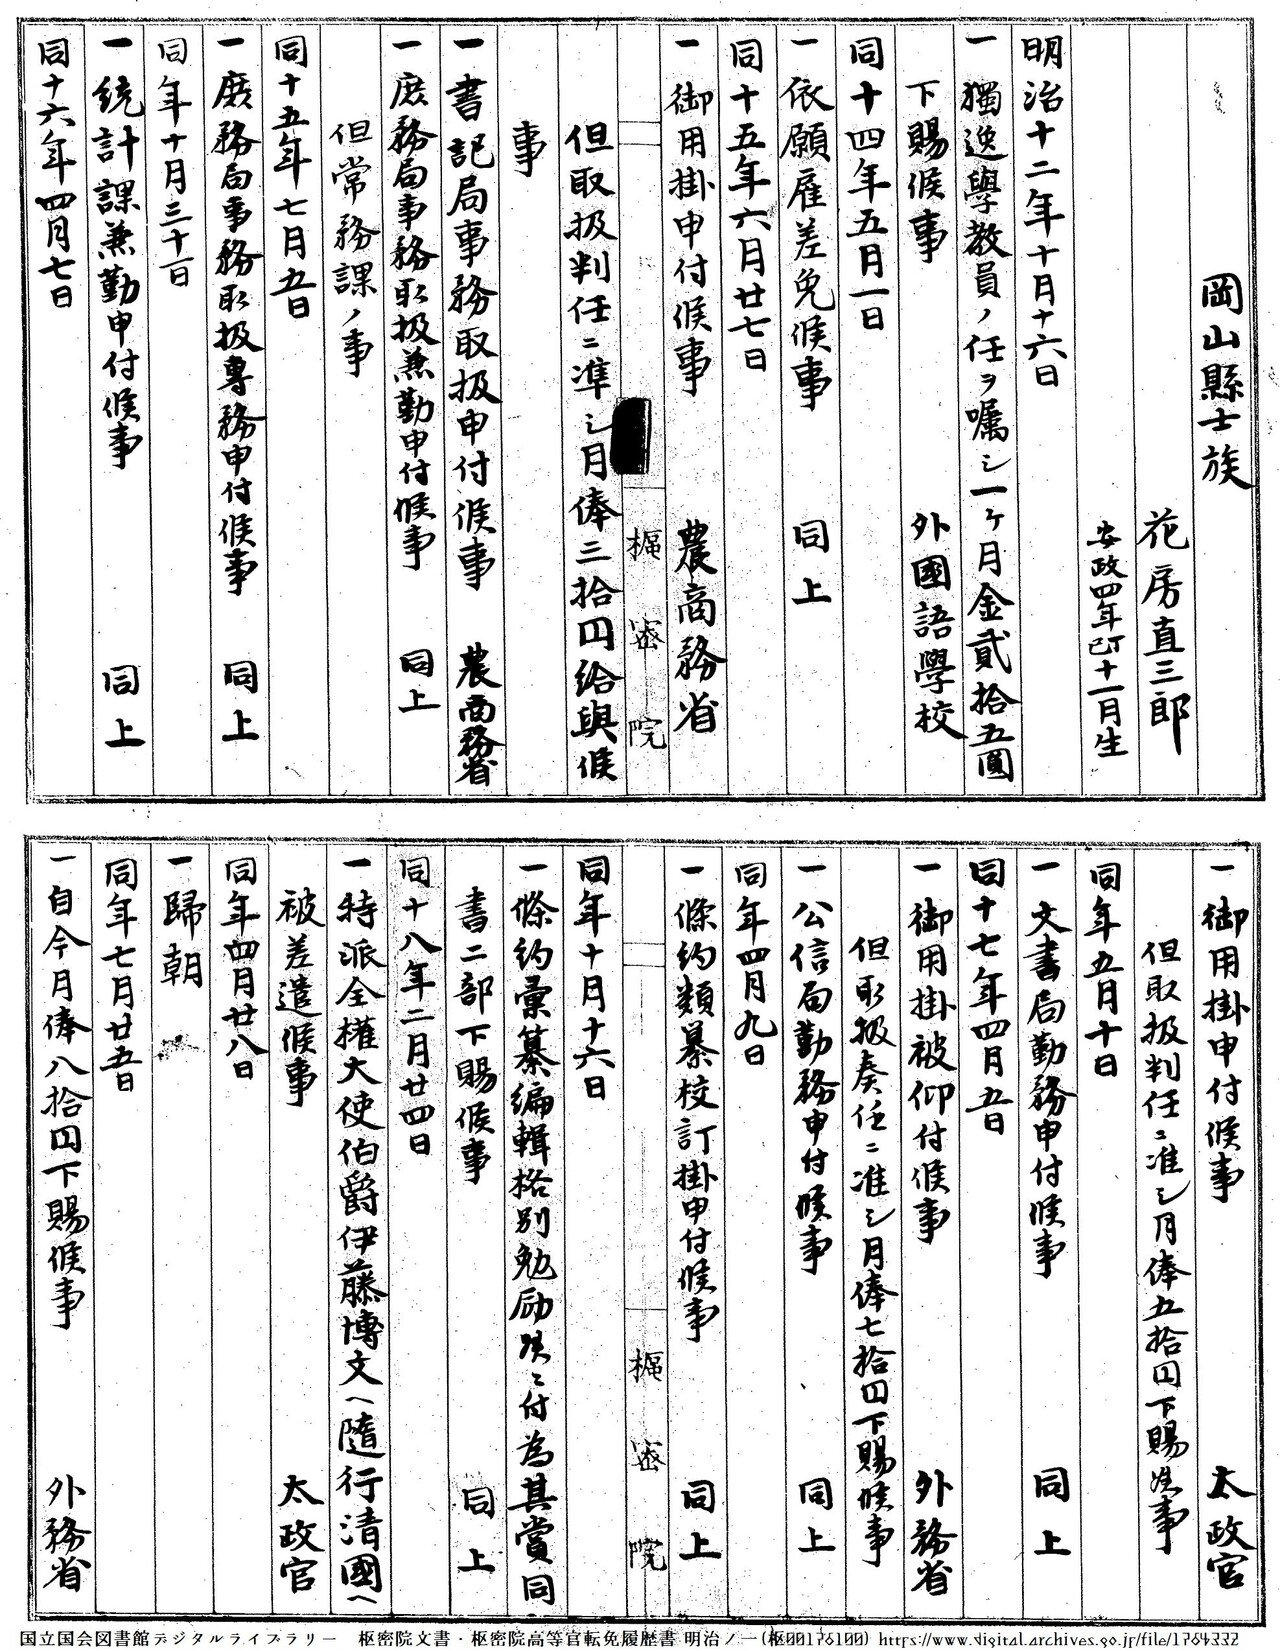 岡山縣士族
花房直三郎
安政四年丁巳十一月生
明治十二年十月十六日
一獨逸學教員ノ任ヲ嘱シ一ヶ月金貳拾五圓
下賜候事　外國語學校
同十四年五月一日
一依願雇差免候事　同上
同十五年六月廿七日
一御用掛申付候事　農商務省
樞密院
但取扱判任ニ準シ月俸三拾円給與候
事
一書記局事務取扱申付候事　農商務省
一庶務局事務取扱兼勤申付候事　同上
但常務課ノ事
同十五年七月五日
一庶務局事務取扱專務申付候事　同上
同年十月三十一日
一統計課兼勤申付候事　同上
同十六年四月七日
一御用掛申付候事　太政官
但取扱判任ニ准シ月俸五拾円下賜候事
同年五月十日
一文書局勤務申付候事　同上
同十七年四月五日
一御用掛被仰付候事　外務省
但取扱奏任ニ准シ月俸七拾円下賜候事
一公信局勤務申付候事　同上
同年四月九日
一條約類纂校訂掛申付候事　同上
樞密院
同年十月十六日
一條約彙纂編輯格別勉励候ニ付為其賞同
書二部下賜候事　同上
同十八年二月廿四日
一特派全權大使伯爵伊藤博文ヘ隨行清國ヘ
被差遣候事　太政官
同年四月廿八日
一歸朝
同年七月廿五日
一自今月俸八拾円下賜候事　外務省
国立国会図書館デジタルライブラリー　枢密院文書・枢密院高等官転免履歴書 明治ノ一(枢00176100) https://www.digital.archives.go.jp/file/1764332